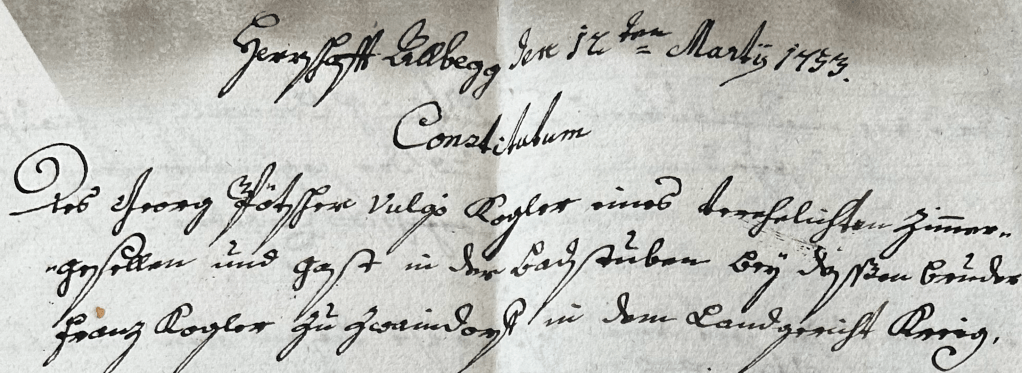 Herrschafft Allbegg den 12ten Martÿ 1753.
Constitutum
Des Georg Pötscher vulgo Kogler eines verehelichten Zimmer-
-gesellen und gast in der badstuben beÿ dessen bruder
Franz Kogler zu Zwaindorf in dem Landgericht Kreig.